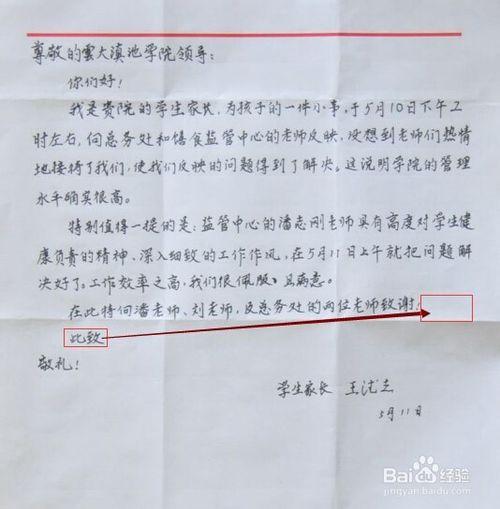 尊敬的雲大滇池学院领导：
你们好！
我是贵院的学生家长，为孩子的一件小事，于5月10日下午
时左右，向总务处和膳食监管中心的老师反映，没想到老师们热情
地接待了我们，使我们反映的问题得到了解决。这说明学院的管理
水平确实很高。
特别值得一提的是：监管中心的潘志刚老师具有高度对学生健
康负责的精神、深入细致的工作作风，在5月11日上午就把问题解
决好了，工作效率之高，我们很佩服、且满意。
在此特向潘老师、刘老师，及总务处的两位老师致谢！
此致
敬礼！
学生家长 王
5月11日
Baidu经验
jingyan.baidu.com